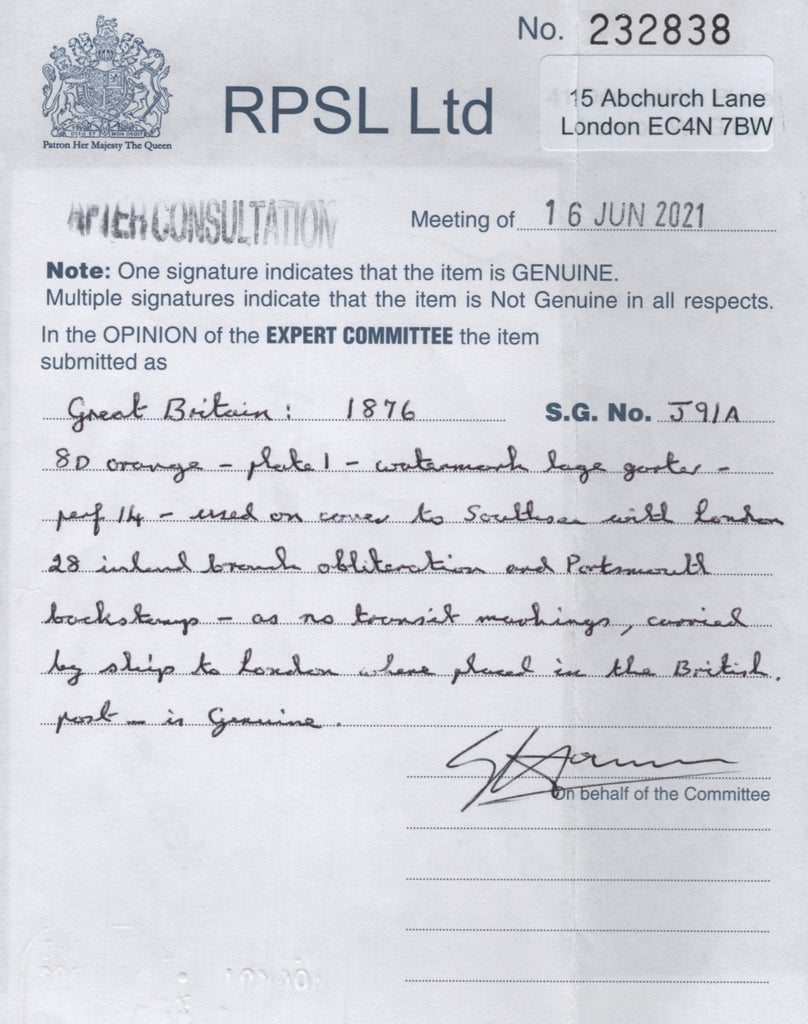 No. 232838
RPSL Ltd
15 Abchurch Lane
London EC4N 7BW
Patron Her Majesty The Queen
AFTER CONSULTATION
Meeting of 16 JUN 2021
Note: One signature indicates that the item is GENUINE.
Multiple signatures indicate that the item is Not Genuine in all respects.
In the OPINION of the EXPERT COMMITTEE the item
submitted as
Great Britain: 1876 S.G. No. J91A
8D orange - plate 1 - watermark large garter -
perf 14 - used on cover to Southsea with London
28 inland branch obliteration and Portsmouth
backstamp - as no transit markings, carried
by ship to London where placed in the British
post - is Genuine.
On behalf of the Committee